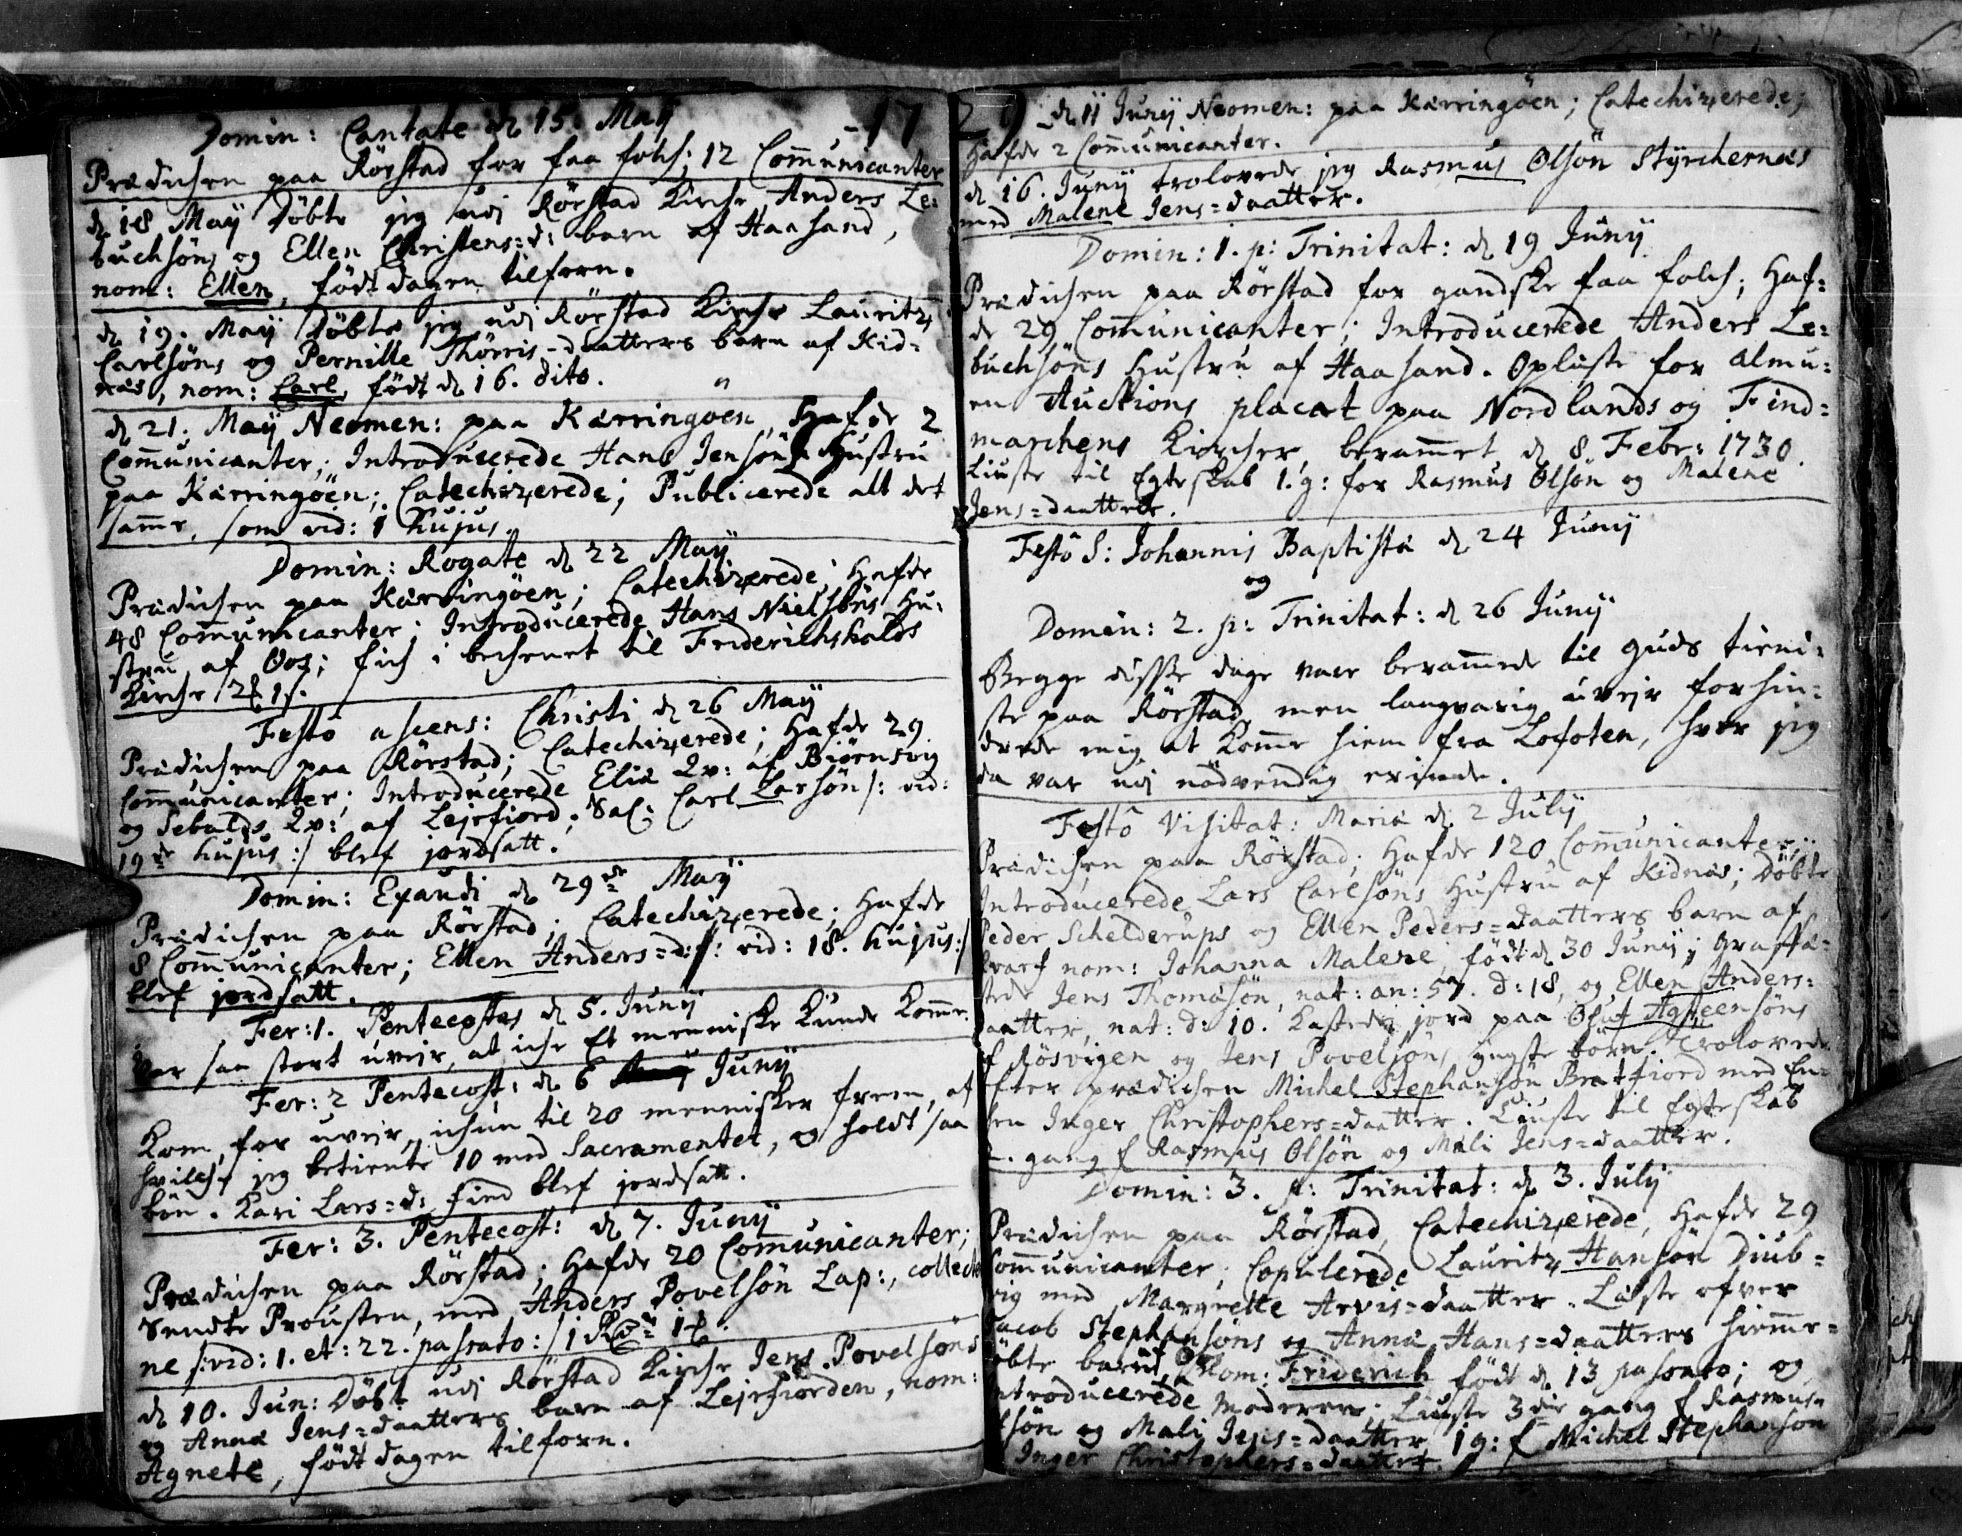 Domin: Cantate d. 15. Maÿ -17
Prædichen paa Rörstad for faa folch; 12 Communicanter
d. 18 Maÿ Döbte jeg udj Rörstad Kirche Anders Le-
buchsöns og Ellen Christens=d: barn af Haasand,
nom: Ellen, födt dagen tilforn.
d. 19. Maÿ Döbte jeg udj Rörstad Kirche Lauritz
Carlsöns og Pernille Thörris=daatters barn af Kid-
næs, nom: Carl, födt d. 16. dito.
d. 21. Maÿ Neomen: paa Kærringöen, Hafde 2
Communicanter; Introducerede Hans Jensöns Hustru
paa Kærringöen; Catechizerede; Publicerede alt det
samme, som vid: 1 hujus.
Domin: Rogate d. 22 Maÿ
Prædichen paa Kærringöen; Catechizerede; Hafde
48 Communicanter; Introducerede Hans Nielsöns Hu-
stru af Oos; fich i bechenet til Friderichshalds
Kirche
Festo ascens: Christi d. 26 Maÿ
Prædichen paa Rörstad; Catechizerede; Hafde 29
Communicanter; Introducerede Eliæ Qv: af Biörnsvig
og Sebalds Qv: af Lejrfiord; Sal: Carl Larsön /: vid:
19de hujus :/ blef jordsatt.
Domin: Exaudi d. 29de Maÿ
Prædichen paa Rörstad; Catechizerede; Hafde
8 Communicanter; Ellen Anders=d: /: vid: 18. hujus :/
blef jordsatt.
Fer: 1. Pentecostes d. 5. Junÿ
Var saa stort uvejr, at iche Et menniske kunde komme.
Fer: 2 Pentecost: d. 6 Junÿ
Kom, for uvejr, ichun til 20 mennisker frem, af
hvilche jeg betiente 10 med Sacramentet, og holdt saa
bön. Kari Lars=d: Find blef jordsatt.
Fer: 3. Pentecost: d. 7. Junÿ
Prædichen paa Rörstad; Hafde 20 Communicanter;
Sendte Prousten, med Anders Povelsön Lap:, collecte
ne /: vid: 1. et: 22. passato :/
d. 10. Jun: Döbt udj Rörstad Kirche Jens Povelsöns
og Anna Jens=daatters barn af Lejrfiorden, nom:
Agnete, födt dagen tilforn.
29 d. 11 Junÿ Neomen: paa Kærringöen; Catechizerede;
Hafde 2 Communicanter.
d. 16. Junÿ trolovede jeg Rasmus Olsön Styrchernæs
med Malene Jens=daatter.
Domin: 1. p: Trinitat: d. 19 Junÿ
Prædichen paa Rörstad for gandske faa folch; Haf-
de 29 Communicanter; Introducerede Anders Le-
buchsöns Hustru af Haasand. Opliuste for almu-
en Auctions placat paa Nordlands og Find-
marchens Kircher, berammet d. 8. Febr: 1730.
Liuste til Egteskab 1. g: for Rasmus Olsön og Malene
Jens=daatter.
Festo S: Johannis Baptistæ d. 24 Junÿ
og
Domin: 2. p: Trinitat: d. 26 Junÿ
Begge disse dage vare berammede til Guds tieni-
ste paa Rörstad, men langvarig uvejr forhin-
drede mig at komme hiem fra Lofoten, hvor jeg
da var udj nödvendig erinde.
Festo Visitat: Mariæ d. 2 Julÿ
Prædichen paa Rörstad; Hafde 120 Communicanter;
Introducerede Lars Carlsöns Hustru af Kidnæs; Döbte
Peder Schelderups og Ellen Peders=daatters barn af
nom: Johanna Malene, födt d. 30 Junÿ; Graffæ-
stede Jens Thomæsön, nat: an: 57. d: 18, og Ellen Anders=
daatter, nat: d: 10. Kastede jord paa Oluf Agteensöns
af Rösvigen og Jens Povelsöns yngste börn. Trolovede
efter prædichen Michel Stephansön Bratfiord med En-
ken Inger Christophers=daatter. Liuste til Egteskab
2. gang f Rasmus Olsön og Mali Jens=daatter.
Domin: 3. p: Trinitat: d. 3. Julÿ
Prædichen paa Rörstad, Catechizerede, Hafde 29
Communicanter; Copulerede Lauritz Hansön Diub-
vig med Margrette Arvis=daatter. Læste ofver
Jacob Stephansöns og Anna Hans=daatters hiemme-
döbte barn, Nom: Friderich födt d. 13 passato; og
introducerede Moderen; Liuste 3die gang f Rasmus
Olsön og Mali Jens=daatter, 1 g: f Michel Stephansön
Inger Christophers=daatter.